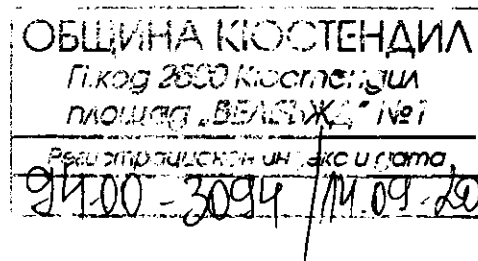 ОБЩИНА КЮСТЕНДИЛ
П.код 2500 Кюстендил
площад „ВЕЛБЪЖД“ №1
Регистрационен индекс и дата
94-00-3094 / 14.09.20